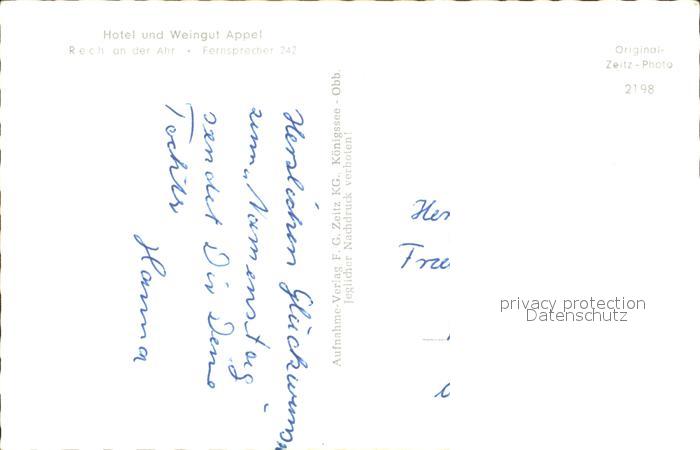 Hotel und Weingut Appel
Rech an der Ahr • Fernsprecher 242
Original-
Zeitz-Photo
2198
Herzlichen Glückwunsch
zum Namenstag
sendet Dir Deine
Tochter
Hanna
Aufnahme-Verlag F. G. Zeitz KG., Königssee - Obb.
Jeglicher Nachdruck verboten!
privacy protection
Datenschutz